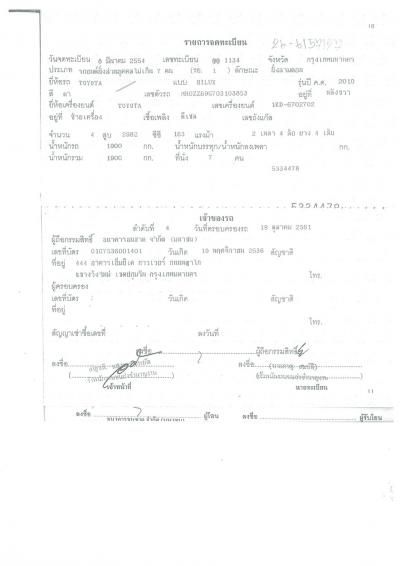 18
รายการจดทะเบียน
วันจดทะเบียน 8 มีนาคม 2554 เลขทะเบียน 1134 จังหวัด กรุงเทพมหานคร
ประเภท รถยนต์นั่งส่วนบุคคลไม่เกิน 7 คน (รย. 1 ) ลักษณะ นั่งสามตอน
ยี่ห้อรถ TOYOTA แบบ HILUX รุ่นปี ค.ศ. 2010
สี เทา เลขตัวรถ อยู่ที่
ยี่ห้อเครื่องยนต์ TOYOTA เลขเครื่องยนต์ 1KD-6702702
อยู่ที่ ซ้ายเครื่อง เชื้อเพลิง ดีเซล เลขถังแก๊ส
จำนวน 4 สูบ 2982 ซีซี 163 แรงม้า 2 เพลา 4 ล้อ ยาง 4 เส้น
น้ำหนักรถ 1900 กก. น้ำหนักบรรทุก/น้ำหนักลงเพลา กก.
น้ำหนักรวม 1900 กก. ที่นั่ง 7 คน
5334478
5334478
เจ้าของรถ
ลำดับที่ 4 วันที่ครอบครองรถ 19 ตุลาคม 2561
ผู้ถือกรรมสิทธิ์ ธนาคารธนชาต จำกัด (มหาชน)
เลขที่บัตร 0107536001401 วันเกิด 19 พฤศจิกายน 2536 สัญชาติ
ที่อยู่ 444 อาคารเอ็มบีเค ทาวเวอร์ ถนนพญาไท
แขวงวังใหม่ เขตปทุมวัน กรุงเทพมหานคร โทร.
ผู้ครอบครอง
เลขที่บัตร วันเกิด สัญชาติ
ที่อยู่
โทร.
สัญญาเช่าซื้อเลขที่ ลงวันที่
ลงชื่อ ผู้ถือกรรมสิทธิ์
ลงชื่อ ลงชื่อ
เจ้าหน้าที่ นายทะเบียน
11
ลงชื่อ ผู้โอน ลงชื่อ ผู้รับโอน